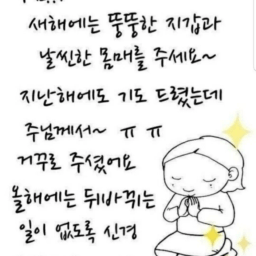 새해에는 뚱뚱한 지갑과
날씬한 몸매를 주세요~
지난해에도 기도 드렸는데
주님께서~ ㅠㅠ
거꾸로 주셨어요
올해에는 뒤바뀌는
일이 없도록 신경